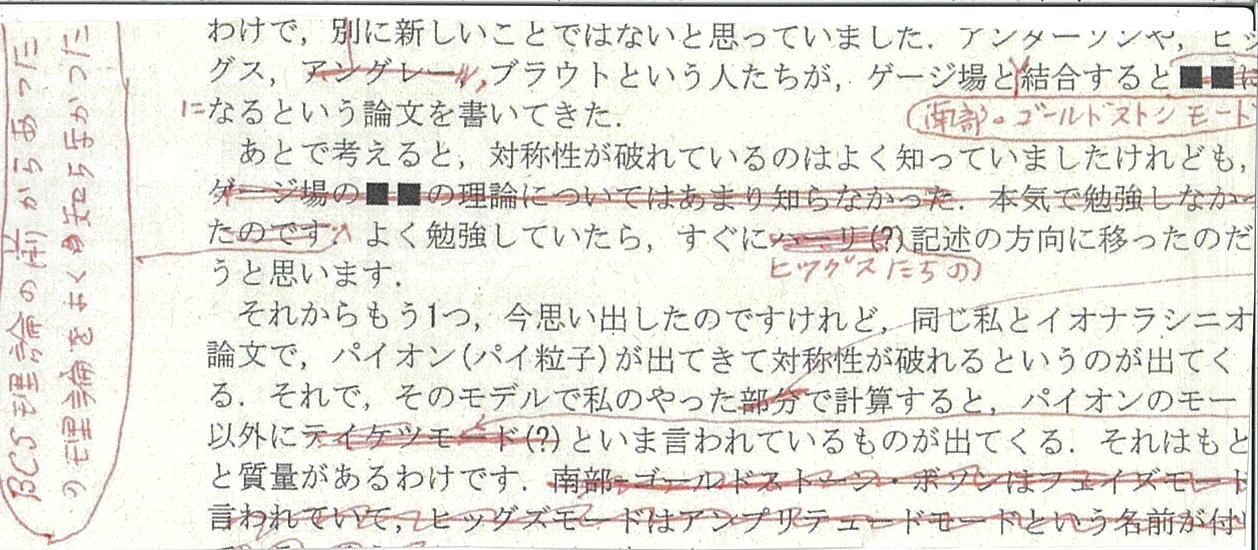 わけで，別に新しいことではないと思っていました．アンダーソンや，ヒッ
グス，アングレール，ブラウトという人たちが，ゲージ場と結合すると■■に
になるという論文を書いてきた．
南部・ゴールドストンモート
あとで考えると，対称性が破れているのはよく知っていましたけれども，
ゲージ場の■■の理論についてはあまり知らなかった．本気で勉強しなかっ
たのです．よく勉強していたら，すぐに(?)記述の方向に移ったのだ
ヒッグスたちの
うと思います．
それからもう1つ，今思い出したのですけれど，同じ私とイオナラシニオ
論文で，パイオン(パイ粒子)が出てきて対称性が破れるというのが出てく
る．それで，そのモデルで私のやった部分で計算すると，パイオンのモー
以外にテイケツモード(?)といま言われているものが出てくる．それはもと
と質量があるわけです．南部-ゴールドストーン・ボソンはフェイズモード
言われていて，ヒッグズモードはアンプリテュードモードという名前が付
BCS理論の前からあった
の理論をよく知らなかった